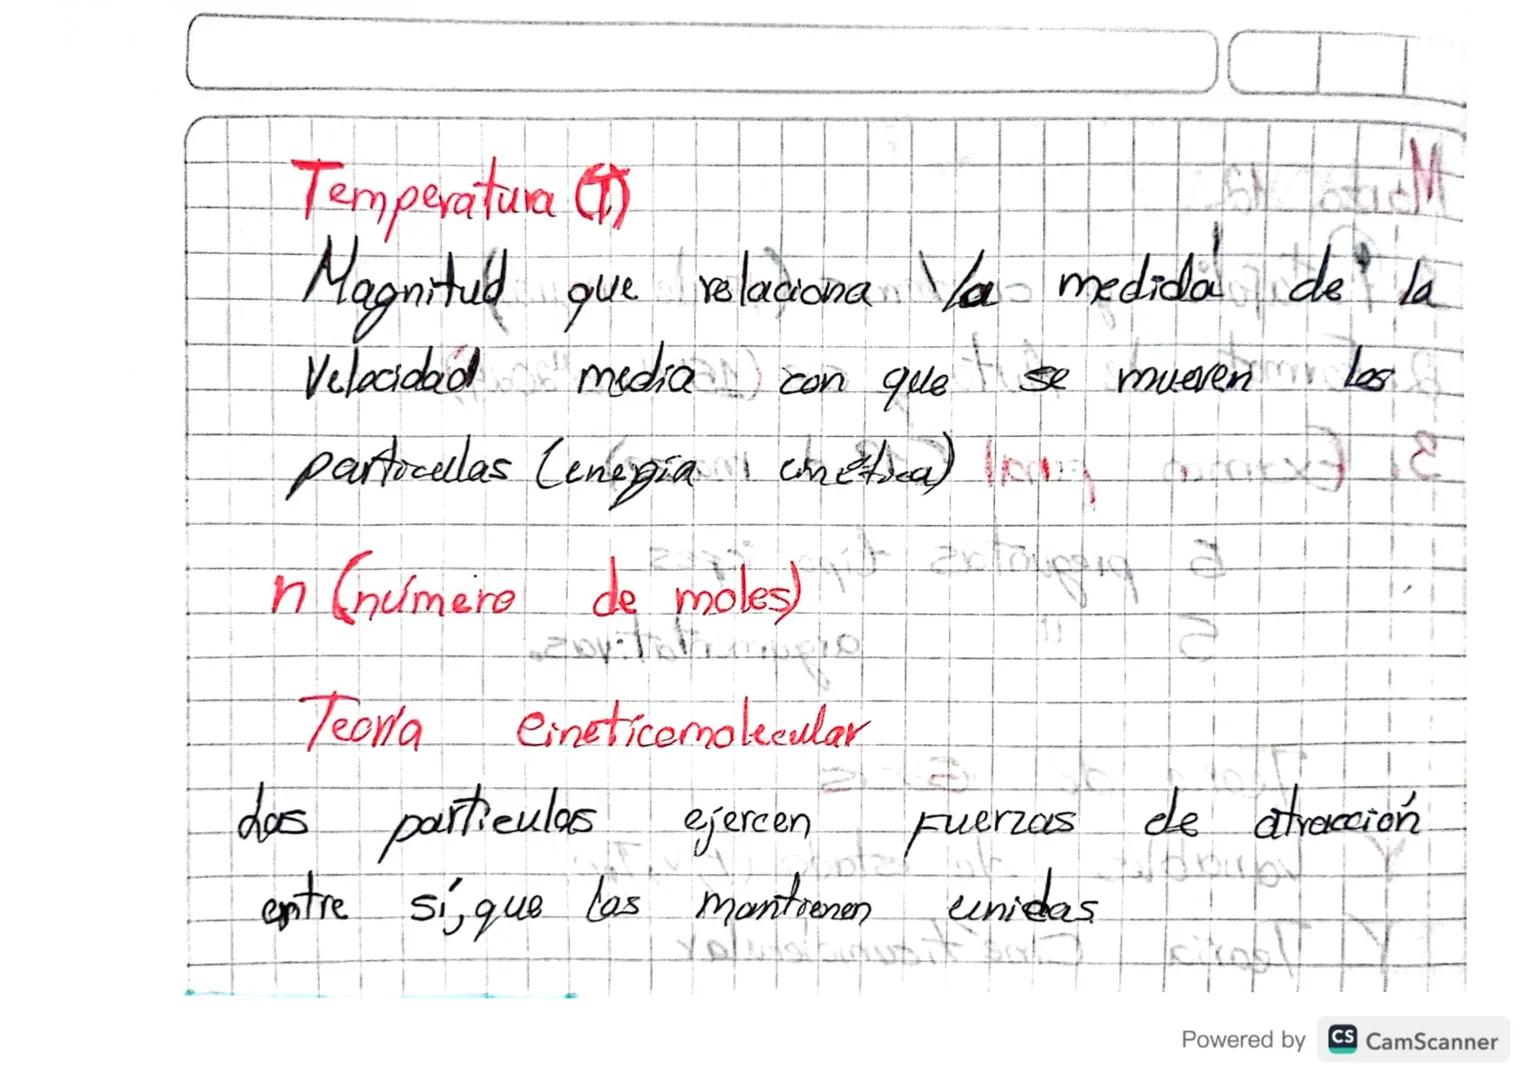 Temperatura (T)
Magnitud que relaciona la medida de la
velocidad media con que se mueven las
particulas (energía cinética)
n (número de moles)
Teoría cineticomolecular
Las particulas ejercen fuerzas de atracción
entre sí, que las mantienen unidas
Powered by CS CamScanner